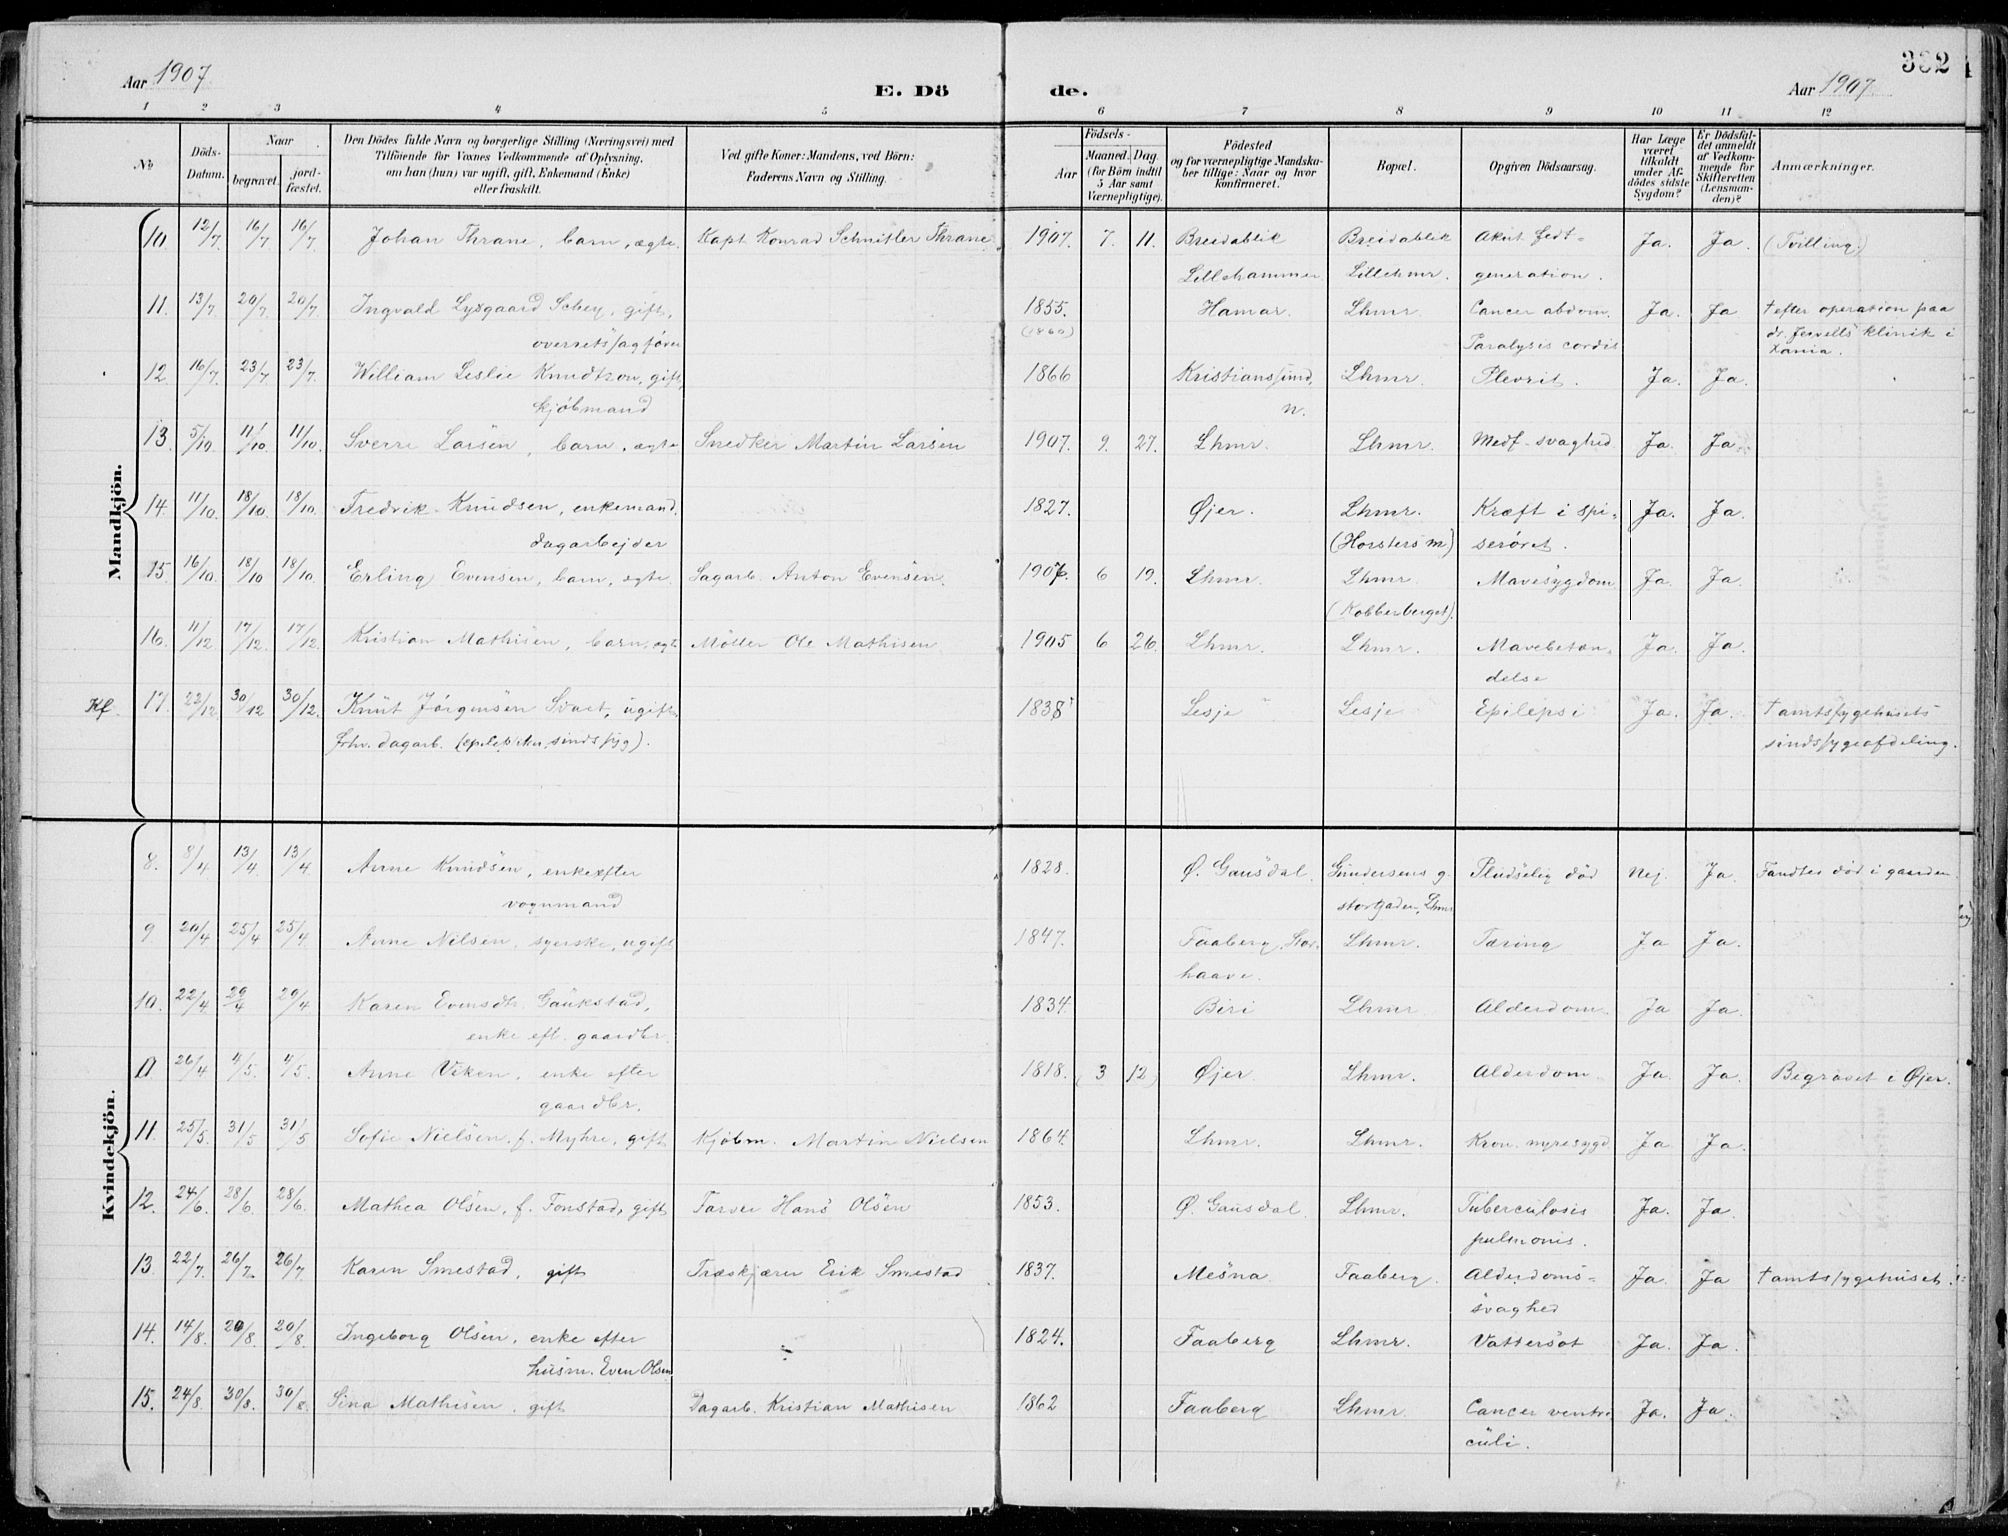 Aar 1907. E. Dö
1 2 3 4 5
No Döds-Datum. Naar begravet. jord-fæstet. Den Dödes fulde Navn og borgerlige Stilling (Næringsvei) med Tilföiende for Voxnes Vedkommende af Oplysning, om han (hun) var ugift, gift, Enkemand (Enke) eller fraskilt. Ved gifte Koner: Mandens, ved Börn: Faderens Navn og Stilling.
de. Aar 1907. 332
6 7 8 9 10 11 12
Födsels- Aar Maaned. Dag. (for Börn indtil 5 Aar samt Værnepligtige). Födested og for værnepligtige Mandskaber tillige: Naar og hvor konfirmeret. Bopæl. Opgiven Dödsaarsag. Har Læge været tilkaldt under Afdödes sidste Sygdom? Er Dödsfaldet anmeldt af Vedkommende for Skifteretten (Lensmanden)? Anmærkninger.
Mandkjön.
10. 12/7. 16/7. 16/7. Johan Thrane, barn, ægte. Kapt. Konrad Schnitler Thrane. 1907. 7. 11. Breidablik Breidablik Akut fedt- Ja. Ja. (Tvilling.)
Lillehammer Lillehmr. generation.
11. 13/7 20/7. 20/7. Ingvald Lysgaard Schey, gift, 1855. Hamar. Lhmr. Cancer abdom. Ja. Ja † efter operation paa
overretssagfører (1860) Paralysis cordis dr. Jervells klinik i
Xania.
12. 16/7. 23/7. 23/7. William Leslie Knudtzon, gift, 1866 Kristianssund, Lhmr. Plevrit. Ja. Ja.
kjøbmand n.
13. 5/10. 11/10. 11/10. Sverre Larsen, barn, ægte Snedker Martin Larsen 1907. 9. 27. Lhmr. Lhmr. Medf. svaghed Ja. Ja.
14. 11/10. 18/10. 18/10. Fredrik Knudsen, enkemand. 1827. Øjer. Lhmr. Kræft i spi- Ja. Ja.
dagarbejder (Horsters m) serøret.
15. 16/10. 18/10 18/10. Erling Evensen, barn, ægte Sagarb. Anton Evensen. 1907. 6 19. Lhmr. Lhmr. Mavesygdom Ja. Ja.
(Kobberberget).
16. 11/12 17/12. 17/12. Kristian Mathisen, barn, ægte Møller Ole Mathisen 1905 6 26. Lhmr. Lhmr. Mavebetæn- Ja. Ja.
delse
Kf. 17. 23/12 30/12 30/12. Knut Jörgensen Svart, ugift 1838 Lesje Lesje Epilepsi Ja. Ja. † amtssygehusets
forhv. dagarb. (epileptiker, sindssyg). sindssygeafdeling.
Kvindekjön.
8. 8/4 13/4. 13/4. Anne Knudsen, enke efter 1828. Ø. Gausdal. Gundersens g. Pludselig død Nej. Ja. Fandtes død i gaarden
vognmand storgaden, Lhmr
9 20/4 25/4 25/4. Anne Nilsen, syerske, ugift 1847. Faaberg, Stor- Lhmr. Tæring Ja Ja.
haave.
10. 22/4 29/4 29/4. Karen Evensdtr. Gaukstad, 1834. Biri Lhmr Alderdom. Ja Ja.
enke eft. gaardbr.
11 26/4 4/5. 4/5. Anne Viken, enke efter 1818. (3 12) Øjer. Lhmr. Alderdom. Ja. Ja. Begravet i Øjer.
gaardbr.
11. 25/5. 31/5 31/5 Sofie Nielsen, f. Myhre, gift Kjøbm. Martin Nielsen 1864. Lhmr. Lhmr. Kron. nyresygd Ja Ja.
12. 24/6. 28/6. 28/6. Mathea Olsen, f. Fonstad, gift Farver Hans Olsen 1853. Ø. Gausdal. Lhmr. Tuberculosis Ja. Ja.
pulmonis.
13. 22/7. 26/7 26/7. Karen Smestad, gift Træskjærer Erik Smestad 1837. Mesna Faaberg. Alderdoms- Ja. Ja † amtssygehuset.
svaghed
14. 14/8. 20/8. 20/8. Ingeborg Olsen, enke efter 1824. Faaberg Lhmr. Vattersot Ja. Ja.
husm. Even Olsen
15. 24/8. 30/8. 30/8. Sina Mathisen, gift Dagarb. Kristian Mathisen 1862 Faaberg Lhmr. Cancer ventri Ja. Ja.
culi.